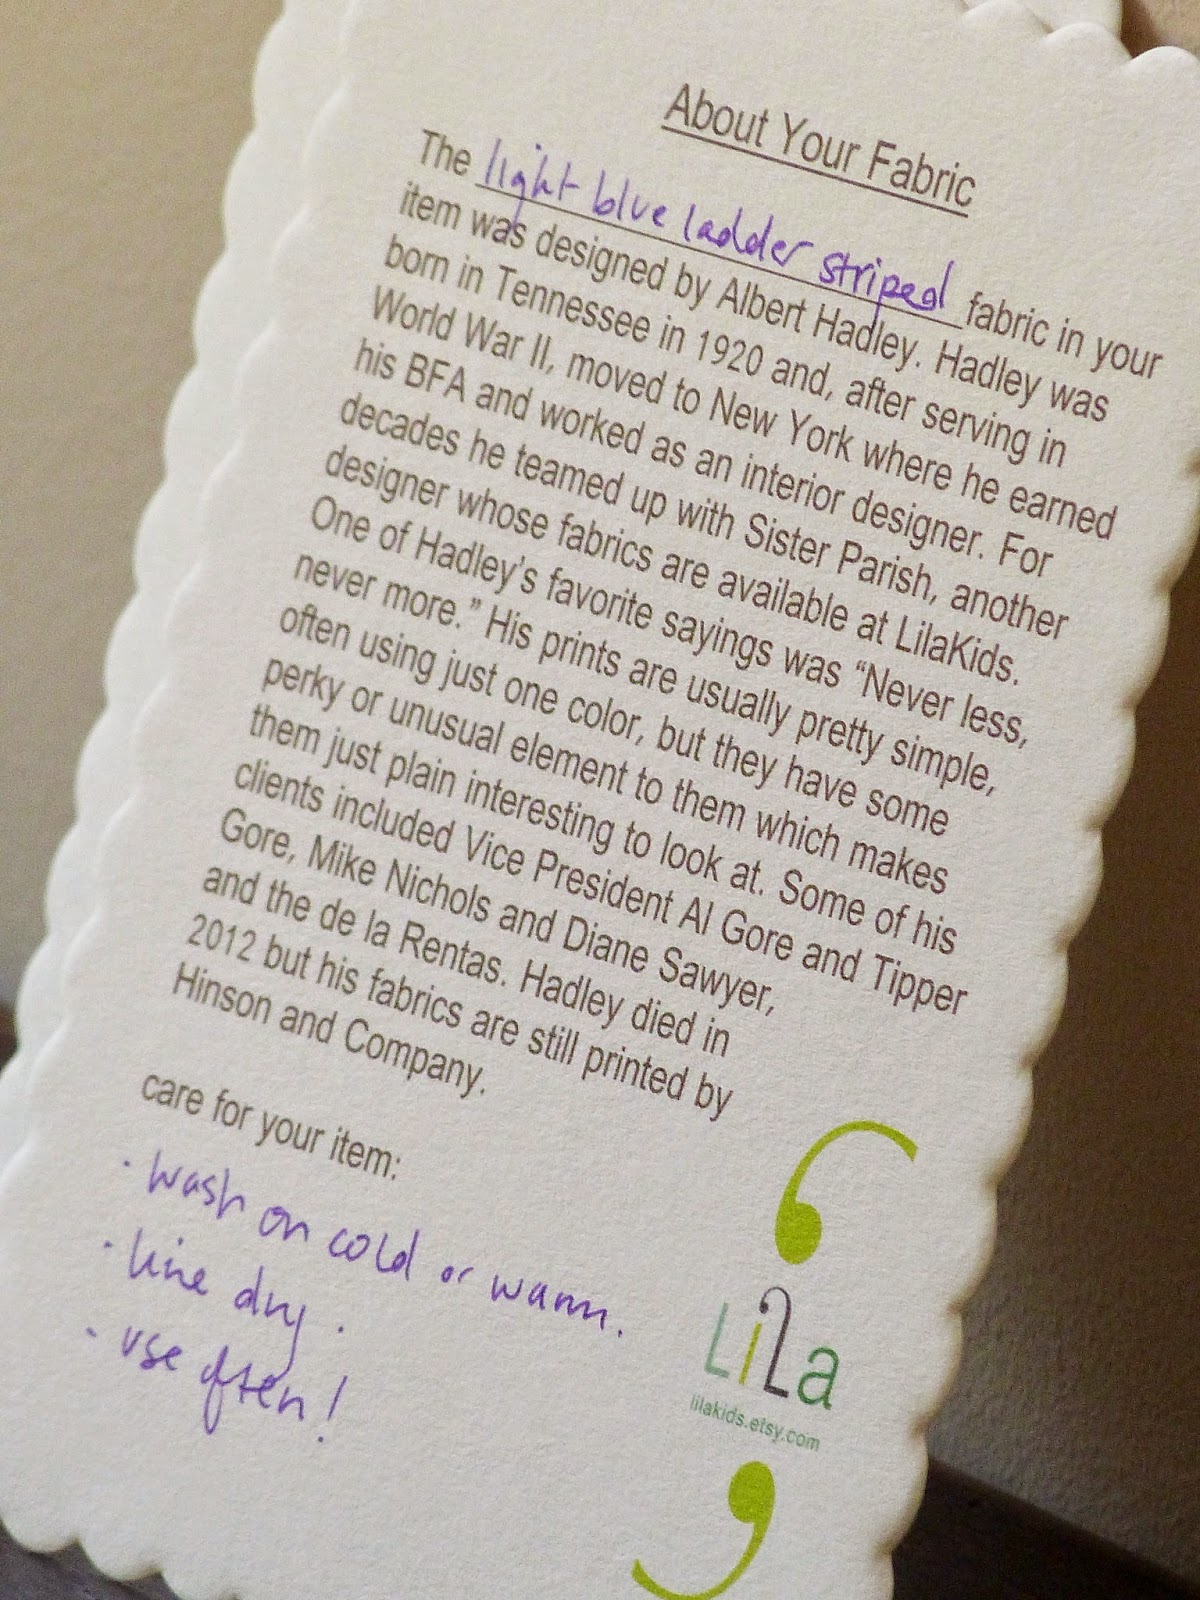 About Your Fabric
The light blue ladder striped fabric in your
item was designed by Albert Hadley. Hadley was
born in Tennessee in 1920 and, after serving in
World War II, moved to New York where he earned
his BFA and worked as an interior designer. For
decades he teamed up with Sister Parish, another
designer whose fabrics are available at LilaKids.
One of Hadley's favorite sayings was “Never less,
never more.” His prints are usually pretty simple,
often using just one color, but they have some
perky or unusual element to them which makes
them just plain interesting to look at. Some of his
clients included Vice President Al Gore and Tipper
Gore, Mike Nichols and Diane Sawyer,
and the de la Rentas. Hadley died in
2012 but his fabrics are still printed by
Hinson and Company.
care for your item:
· wash on cold or warm.
· line dry.
· use often!
LiLa
lilakids.etsy.com